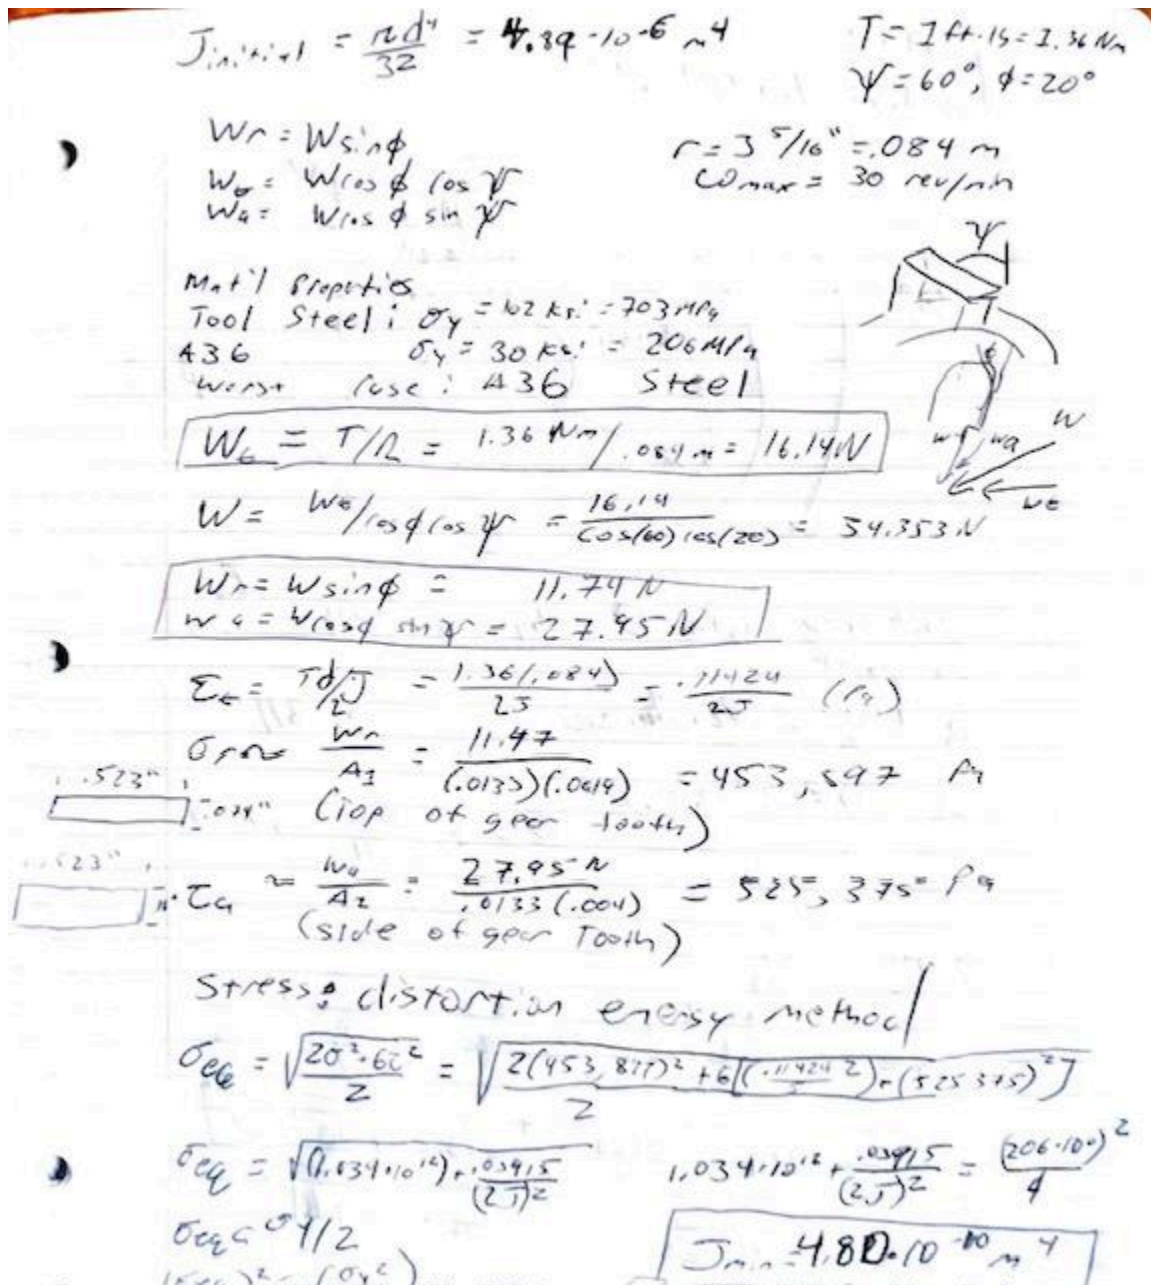 J initial = πd⁴/32 = 4.89·10^-6 m⁴
T = 1 ft·lb = 1.36 Nm
ψ = 60°, ϕ = 20°
Wr = W sin ϕ
r = 3 5/16" = .084 m
W = W cos ϕ cos ψ
ωmax = 30 rev/min
Wa = W cos ϕ sin ψ
ψ
Mat'l Properties
Tool Steel: σy = 102 ksi = 703 MPa
A36 σy = 30 ksi = 206 MPa
Worst case: A36 Steel
Wt = T/r = 1.36 Nm/.084 m = 16.14 N
W
wr wa
W = Wt/cos ϕ cos ψ = 16.14/cos(60)cos(20) = 34.353 N
Wr = W sin ϕ = 11.74 N
wa = W cos ϕ sin ψ = 27.95 N
= Td/2J = 1.36(.084)/2J = .11424/2J (Pa)
Wr/A1 = 11.47/(.0133)(.0019) = Pa
.523"
(Top of gear tooth)
τa ≈ Wa/A2 = 27.95 N/.0133(.004) = 525,375 Pa
(side of gear Tooth)
Stress: distortion energy method
σeq = √(2σ²·6τ²/2) = √(2(453,897)² + 6[(.11424/2)+(525375)²]/2)
σeq = √(1.034·10^12)+.03915/(2J)²
1.034·10^12 + .03915/(2J)² = (206·10⁶)²/4
σeq < σy/2
Jmin = 4.80·10^-10 m⁴